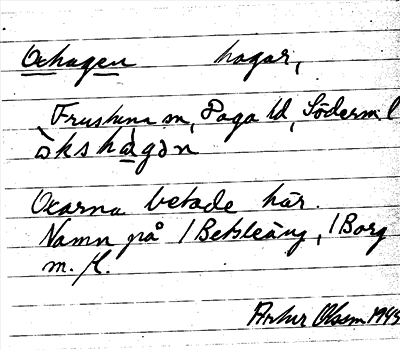 Oxhagen hagar,
Frustuna m, Daga hd, Söderml
òkshàgən
Oxarna betade här.
Namn på 1 Betesäng, 1 Borg
m. fl.
Artur Olsson 1944